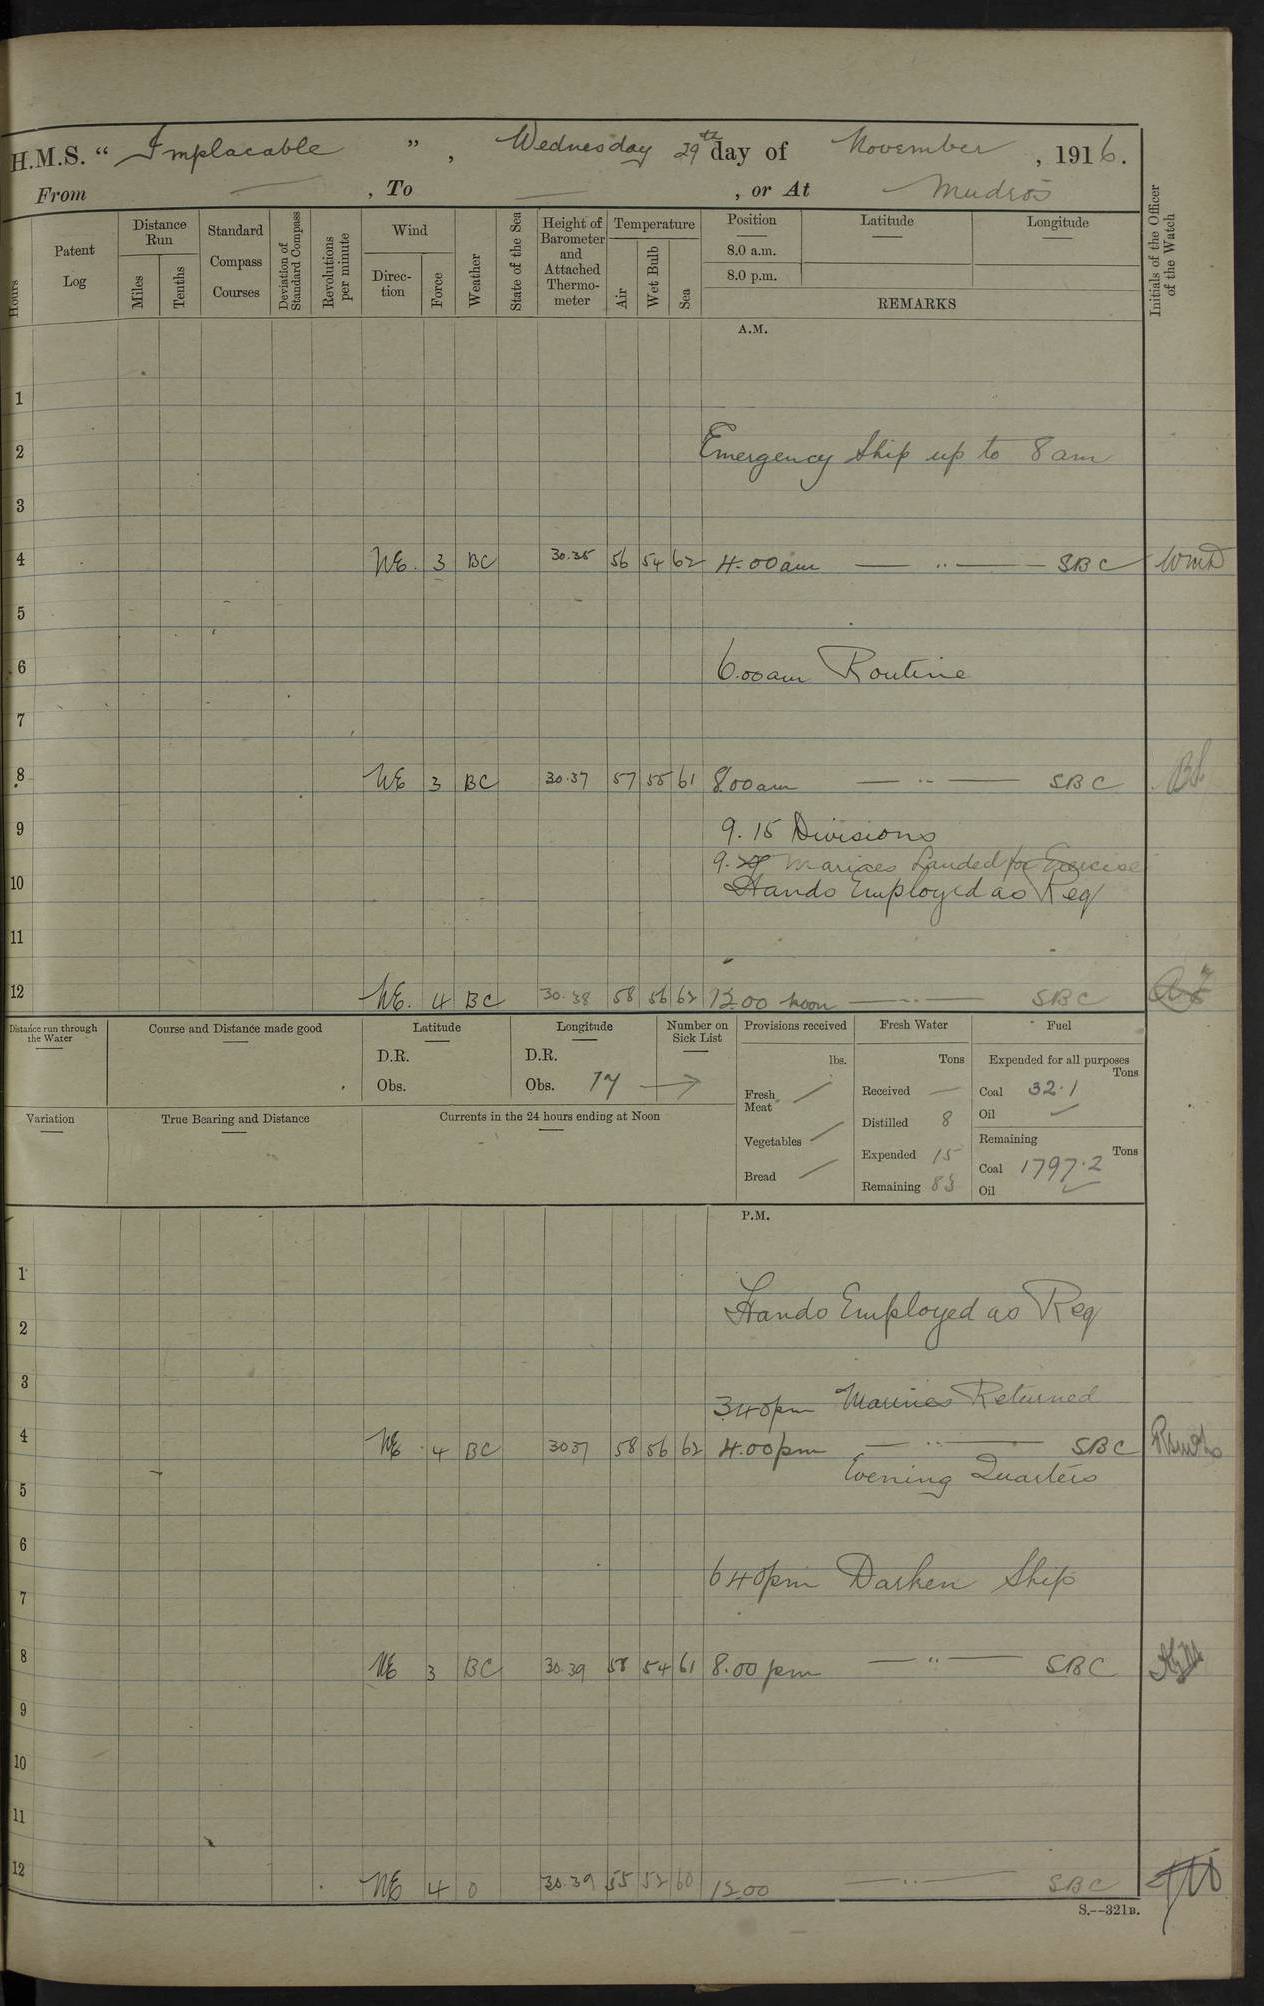 H.M.S. “ Implacable ” , Wednesday 29th day of November , 1916.
From — , To — , or At Mudros
Hours
Patent Log
Distance Run
Miles
Tenths
Standard Compass Courses
Deviation of Standard Compass
Revolutions per minute
Wind
Direction
Force
Weather
State of the Sea
Height of Barometer and Attached Thermometer
Temperature
Air
Wet Bulb
Sea
Position
8.0 a.m.
8.0 p.m.
Latitude
Longitude
REMARKS
Initials of the Officer of the Watch
A.M.
1
2 Emergency Ship up to 8 am
3
4 NE. 3 BC 30.35 56 54 62 4.00am — " — SBC WMD
5
6 6.00am Routine
7
8 NE 3 BC 30.37 57 55 61 8.00am — " — SBC
9 9.15 Divisions
9. Marines Landed for Exercise
10 Hands Employed as Req
11
12 NE. 4 BC 30.38 58 56 62 12.00 noon — " — SBC
Distance run through the Water
Course and Distance made good
Latitude
D.R.
Obs.
Longitude
D.R.
Obs. 17 →
Number on Sick List
Provisions received
lbs.
Fresh Meat
Vegetables
Bread
Fresh Water
Tons
Received —
Distilled 8
Expended 15
Remaining 83
Fuel
Expended for all purposes
Tons
Coal 32.1
Oil
Remaining
Tons
Coal 1797.2
Oil
Variation
True Bearing and Distance
Currents in the 24 hours ending at Noon
P.M.
1
2 Hands Employed as Req
3
340pm Marines Returned
4 NE 4 BC 3037 58 56 62 4.00pm — " — SBC
Evening Quarters
5
6
640pm Darken Ship
7
8 NE 3 BC 30.39 58 54 61 8.00 pm — " — SBC
9
10
11
12 NE 4 O 30.39 55 52 60 12.00 — " — SBC
S.--321B.